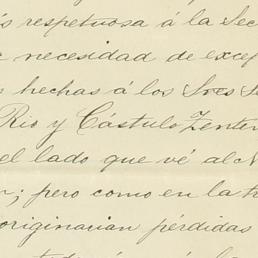 s respetuosa á la Sec
necesidad de excep
s hechas á los Sres
Rio y Cástulo Zenten
el lado que vé al N
; pero como en la tr
originarian pérdidas